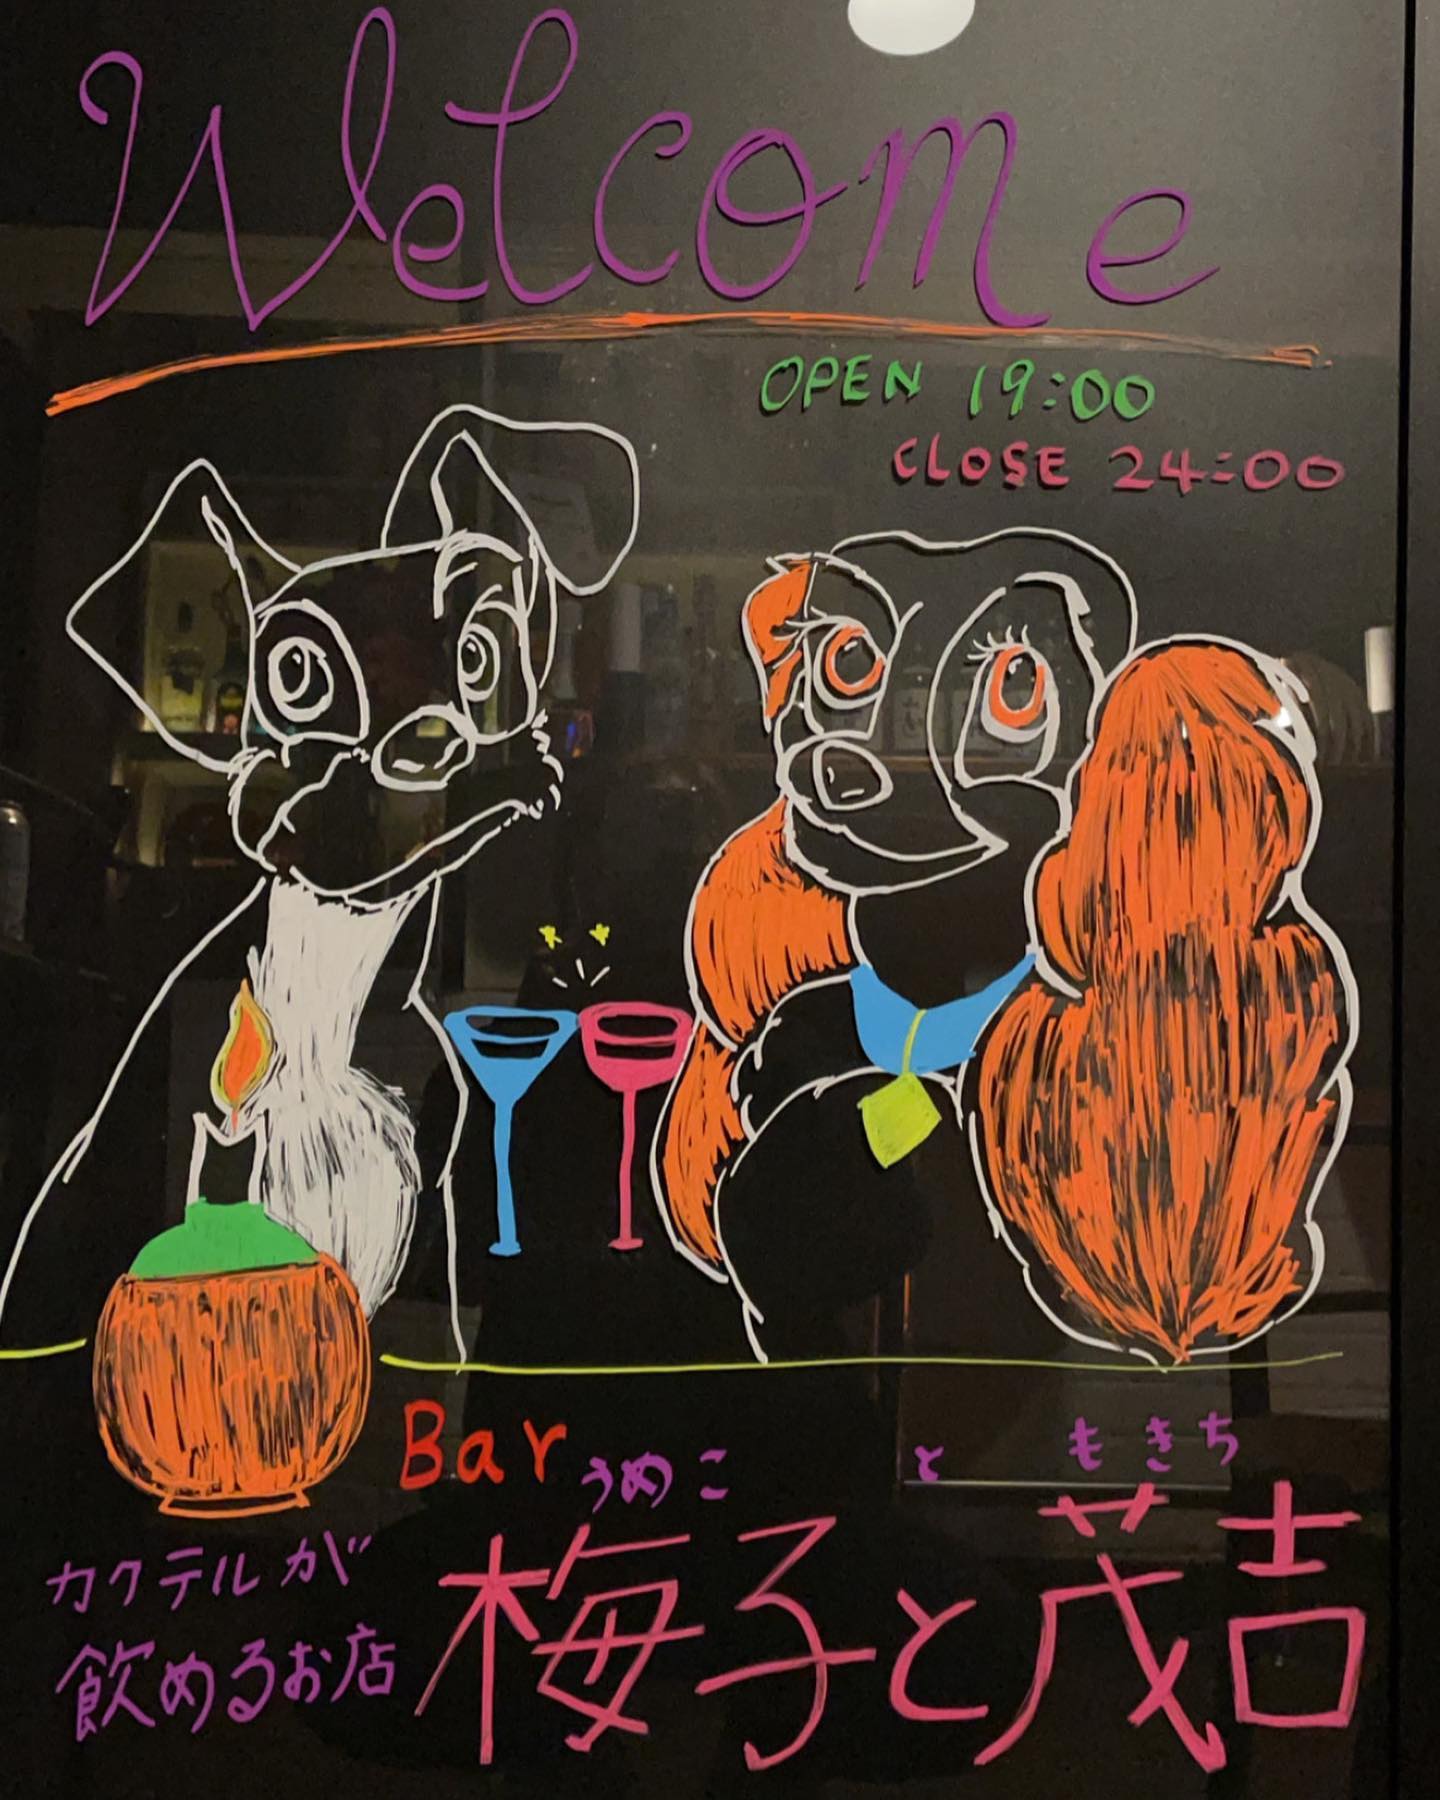 Welcome
OPEN 19:00
CLOSE 24:00
Bar
うめこ と もきち
梅子と茂吉
カクテルが
飲めるお店